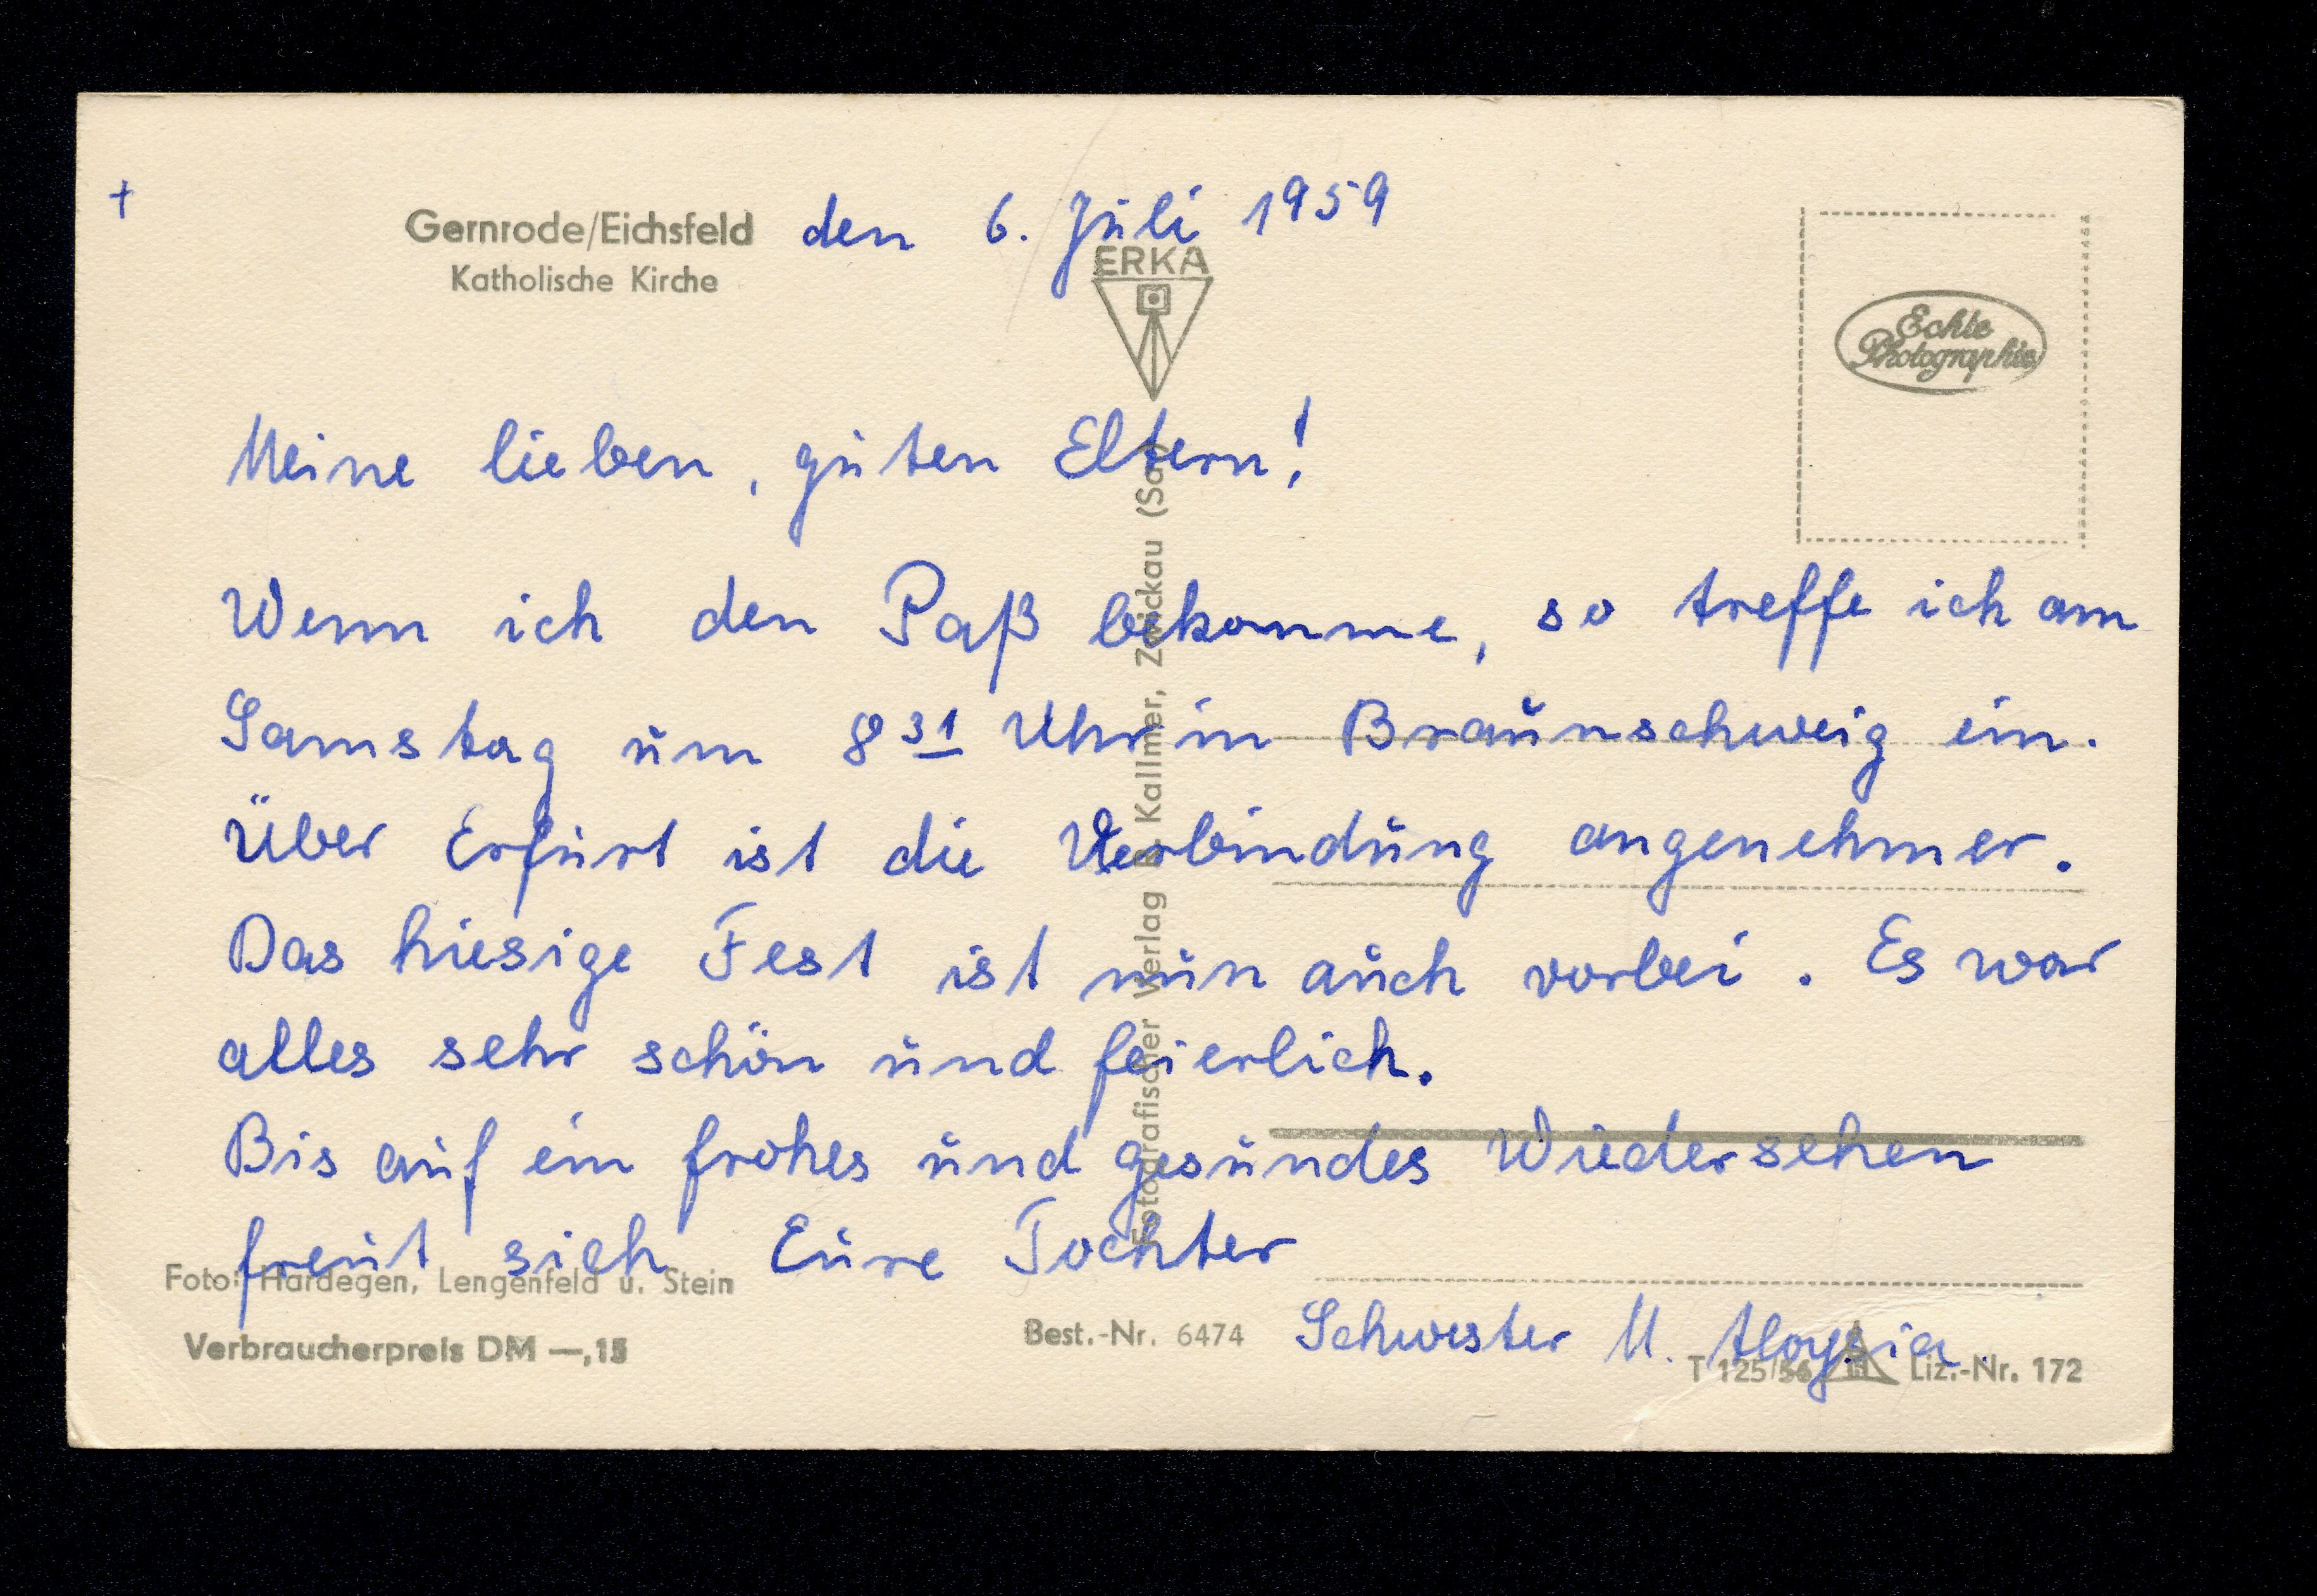 †
Gernrode/Eichsfeld den 6. Juli 1959
Katholische Kirche
ERKA
Echte
Photographie
Meine lieben, guten Eltern!
Wenn ich den Paß bekomme, so treffe ich am
Samstag um 8 31 Uhr in Braunschweig ein.
Über Erfurt ist die Verbindung angenehmer.
Das hiesige Fest ist nun auch vorbei. Es war
alles sehr schön und feierlich.
Bis auf ein frohes und gesundes Wiedersehen
freut sich Eure Tochter
Schwester M. Aloysia.
Fotografischer Verlag Kallmer, Zwickau (Sa.)
Foto: Hardegen, Lengenfeld u. Stein
Verbraucherpreis DM —,15
Best.-Nr. 6474
T 125/56 Liz.-Nr. 172